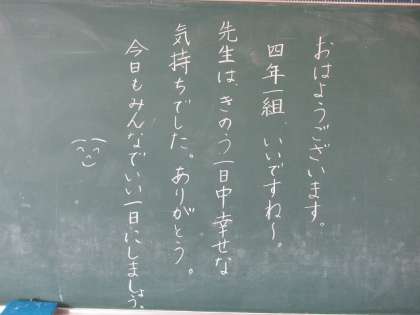 おはようございます。
四年一組、いいですね〜。
先生は、きのう一日中幸せな
気持ちでした。ありがとう。
今日もみんなでいい一日にしましょう。